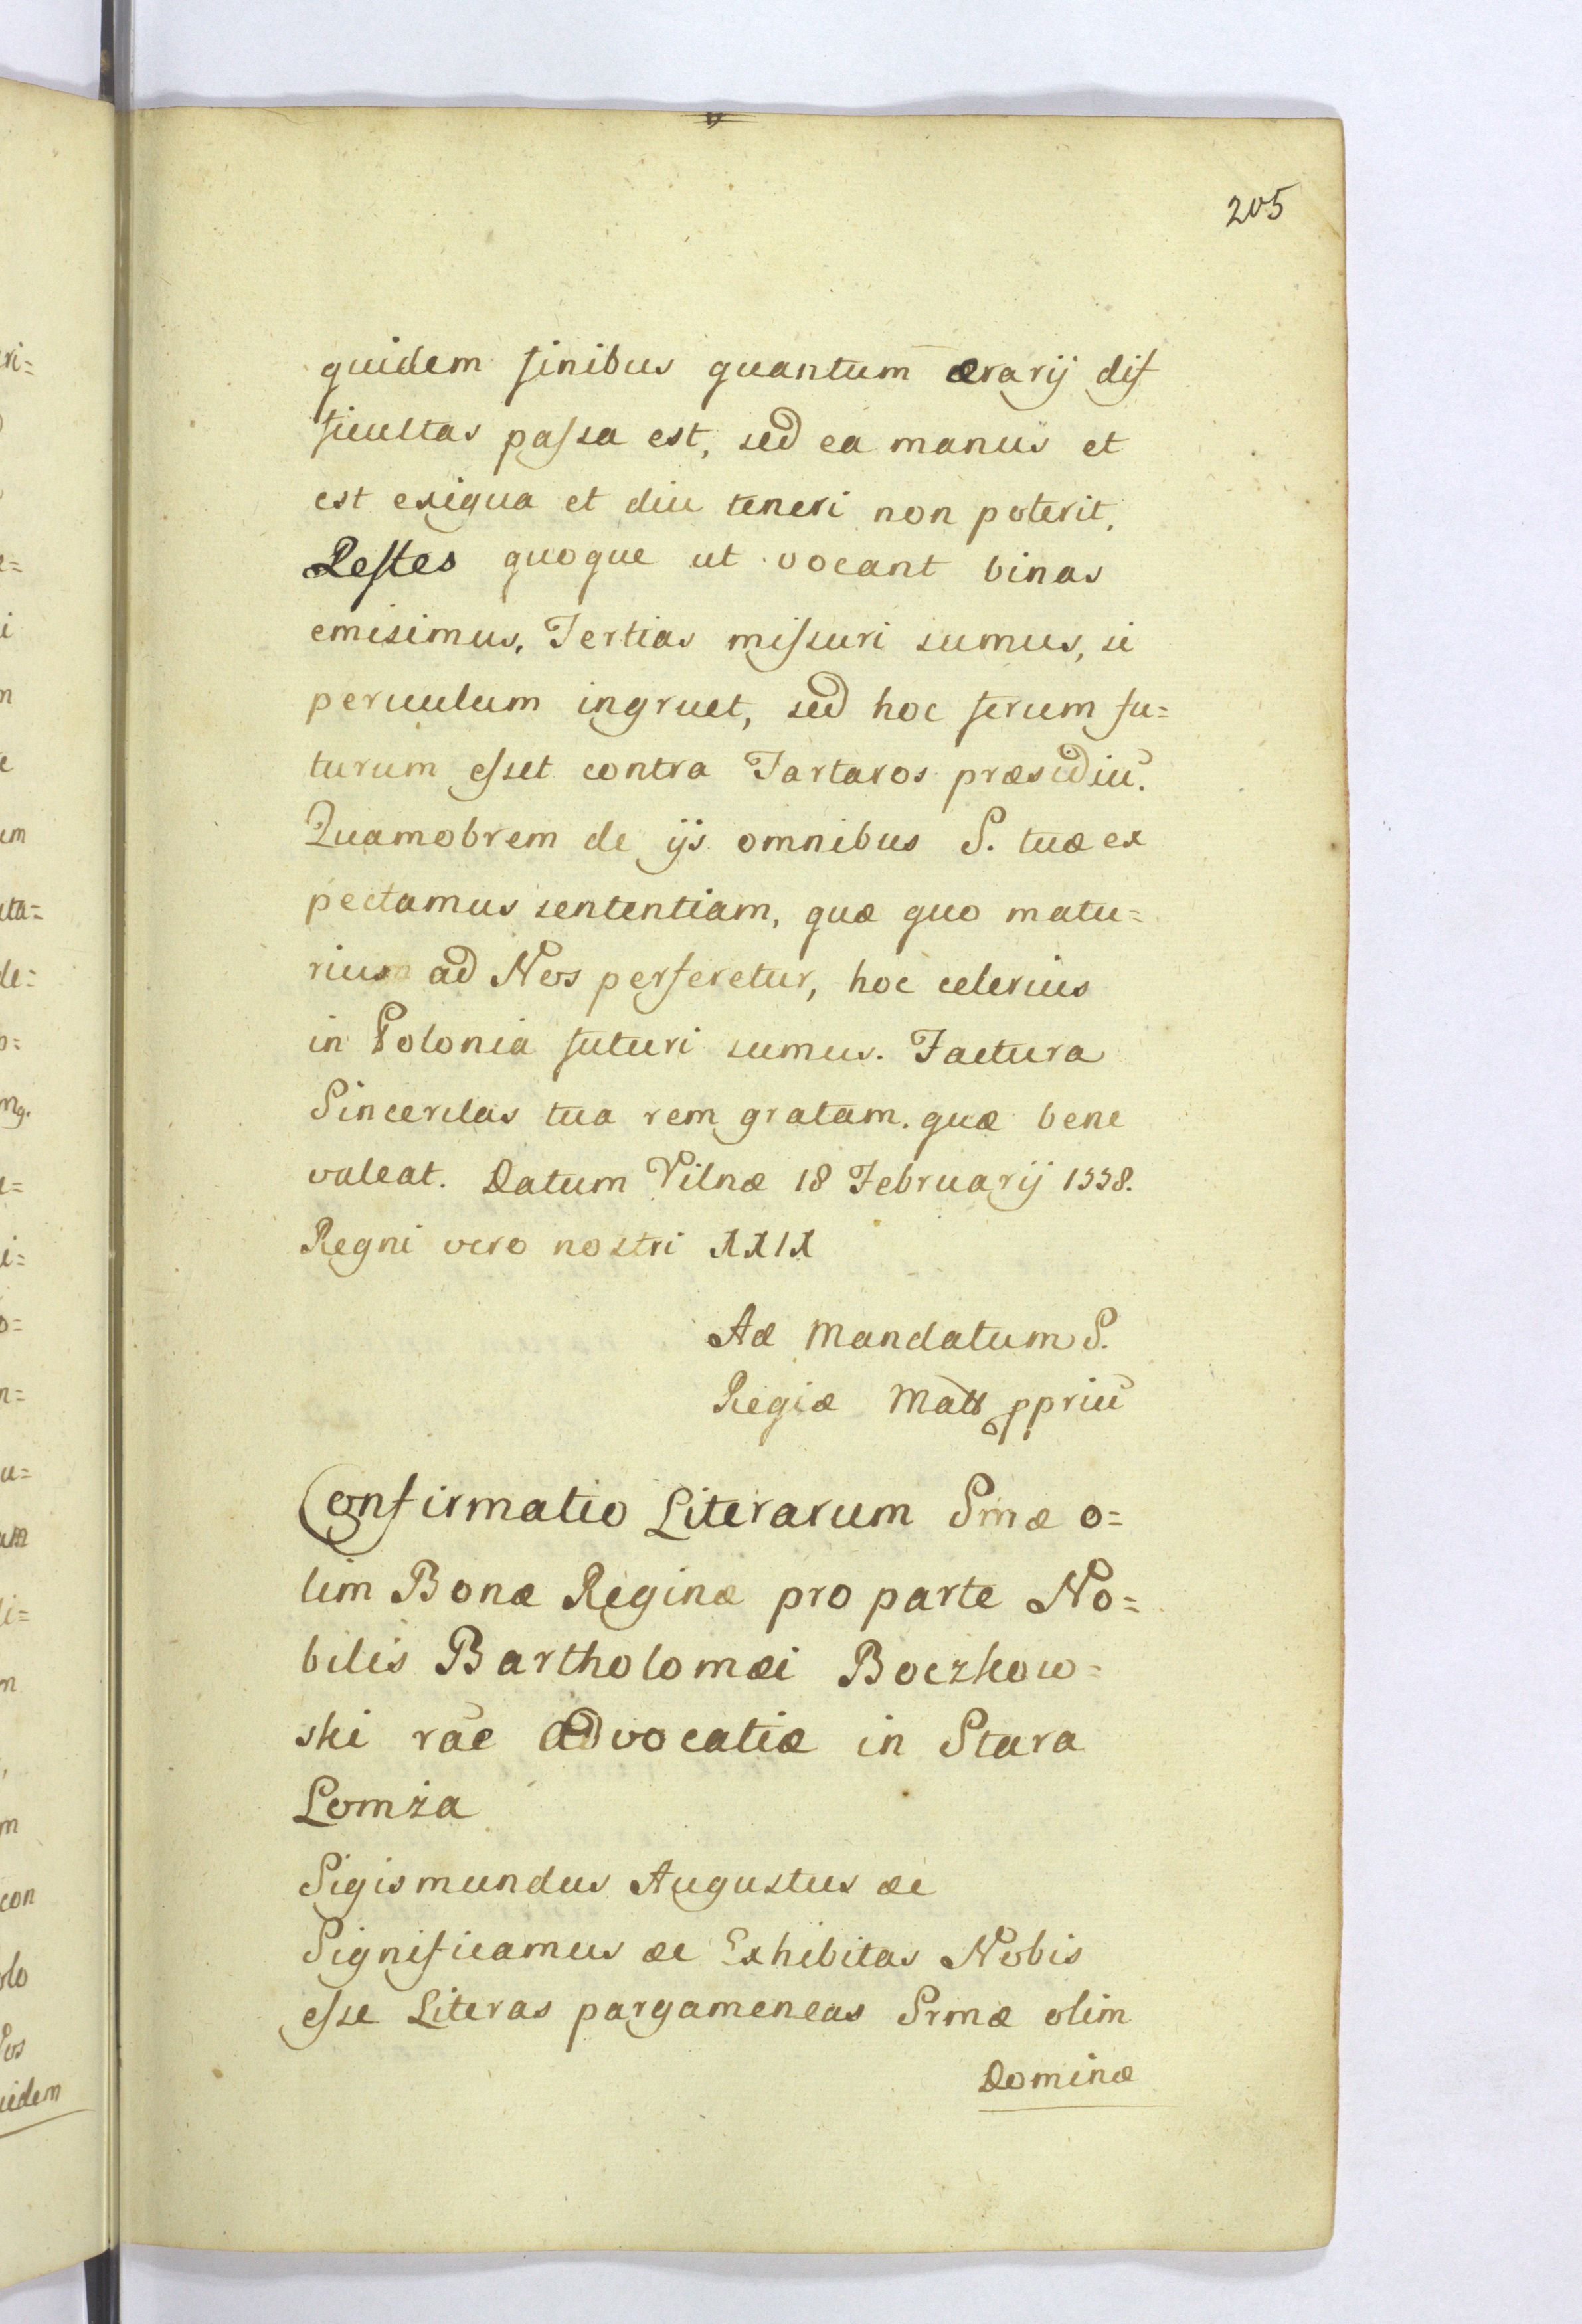 205
quidem finibus quantum ærarij dif
ficultas passa est, sed ea manus et
est exigua et diu teneri non poterit.
Restes quoque ut vocant binas
emisimus, Tertias missuri sumus, si
periculum ingruet, sed hoc serum fu=
turum esset contra Tartaros præsidiū.
Quamobrem de ijs omnibus S. tuæ ex
pectamus sententiam, quæ quo matu=
rius ad Nos perferetur, hoc celerius
in Polonia futuri sumus. Factura
Sinceritas tua rem gratam. quæ bene
valeat. Datum Vilnæ 18 Februarij 1558.
Regni vero nostri XXIX
Ad Mandatum S.
Regiæ Matt ppriū
Confirmatio Literarum Smæ o=
lim Bonæ Reginæ pro parte No=
bilis Bartholomæi Boczkow=
ski rāe advocatiæ in Stara
Lomża
Sigismundus Augustus &c
Significamus &c Exhibitas Nobis
esse Literas pargameneas Srmæ olim
Dominæ
ri=
e=
i
n
um
ata=
de=
mg.
i=
n=
u=
um
li=
m
con
olo
uidem